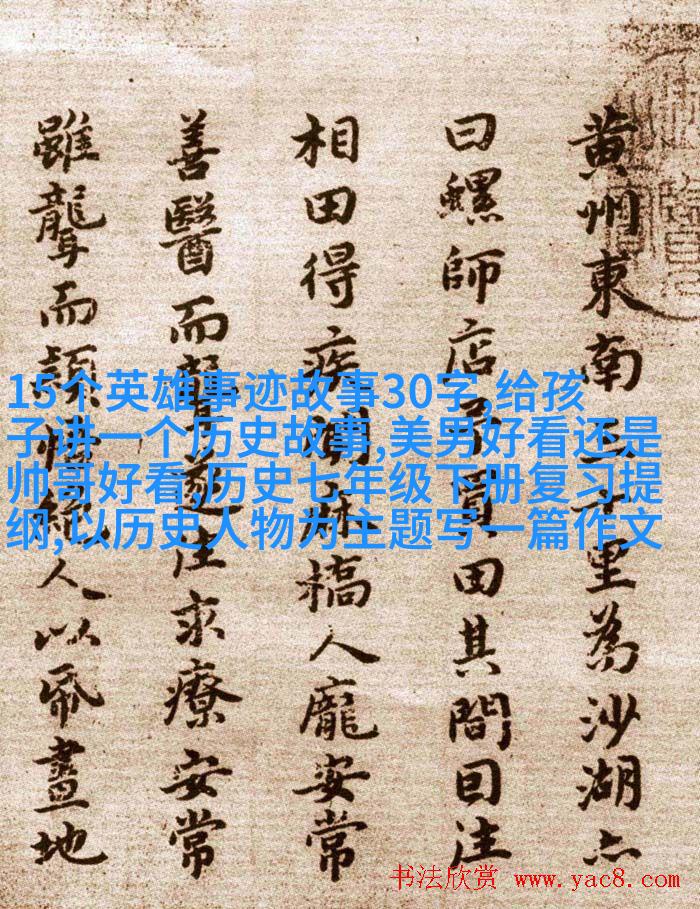 黄州東南三十里為沙湖亦
曰螺師店予買田其間囙往
相田得疾聞麻橋人龐安常
善醫而聾遂往求療安常
雖聾而穎悟絕人以帋畫地
15个英雄事迹故事30字,给孩
子讲一个历史故事,美男好看还是
帅哥好看,历史七年级下册复习提
纲,以历史人物为主题写一篇作文
书法欣赏 www.yac8.com